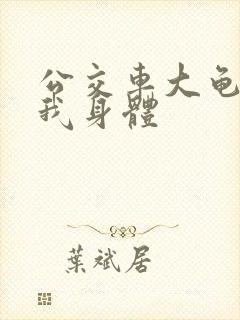 公交車大龟
我身體
葉斌居